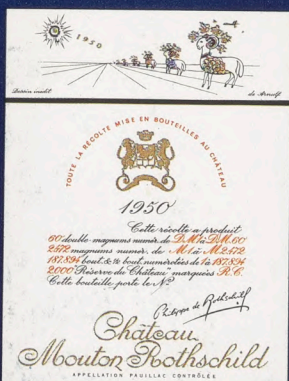 1950
Dessin inédit de Arnulf
TOUTE LA RÉCOLTE MISE EN BOUTEILLES AU CHÂTEAU
1950
Cette récolte a produit
60 double-magnums numér. de D.M.1 à D.M.60
2.472 magnums numér. de M.1 à M.2.472
187.894 bout. & ½ bout. numérotées de 1 à 187.894
2.000 "Réserve du Château" marquées R.C.
Cette bouteille porte le Nº
Philippe de Rothschild
Château
Mouton Rothschild
APPELLATION PAUILLAC CONTRÔLÉE